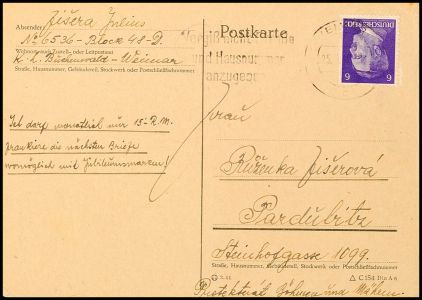 Absender: Jišera Julius
No 6536 - Block 48-D.
Wohnort, auch Zustell- oder Leitpostamt
K. L. Buchenwald - Weimar
Straße, Hausnummer, Gebäudeteil, Stockwerk oder Postschließfachnummer
Ich darf monatlich nur 15.- R.M.
frankiere die nächsten Briefe
womöglich mit Jubileumsmarken!
Postkarte
und Hausnummer
anzugeben
25.
DEUTSCHES REICH
6 6
Frau
Růženka Jišerová
Pardubitz
Steinhofgasse 1099.
Straße, Hausnummer, Gebäudeteil, Stockwerk oder Postschließfachnummer
Protektorat Böhmen und Mähren.
C 154 Din A 6